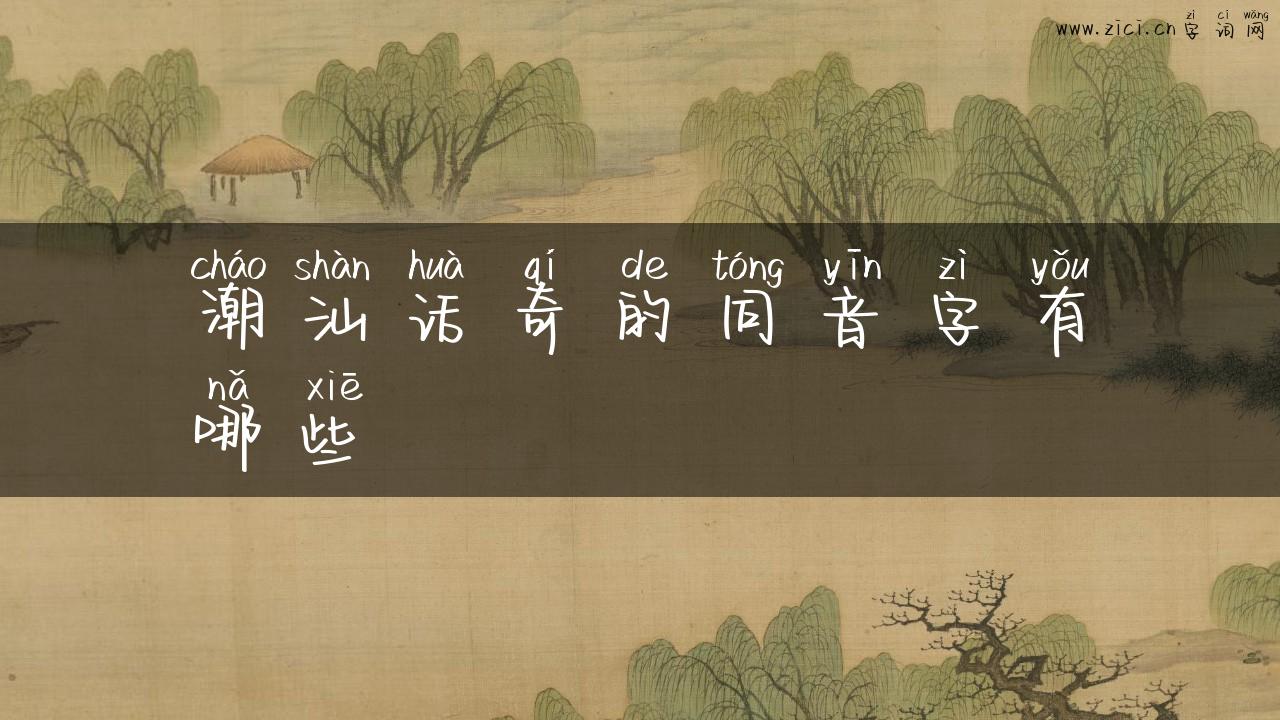 zì cí wǎng
www.zici.cn 字 词 网
cháo shàn huà qí de tóng yīn zì yǒu
潮 汕 话 奇 的 同 音 字 有
nǎ xiē
哪 些